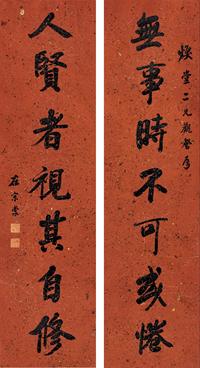 煥堂二兄觀察屬
無事時不可或惰
人賢者視其自修